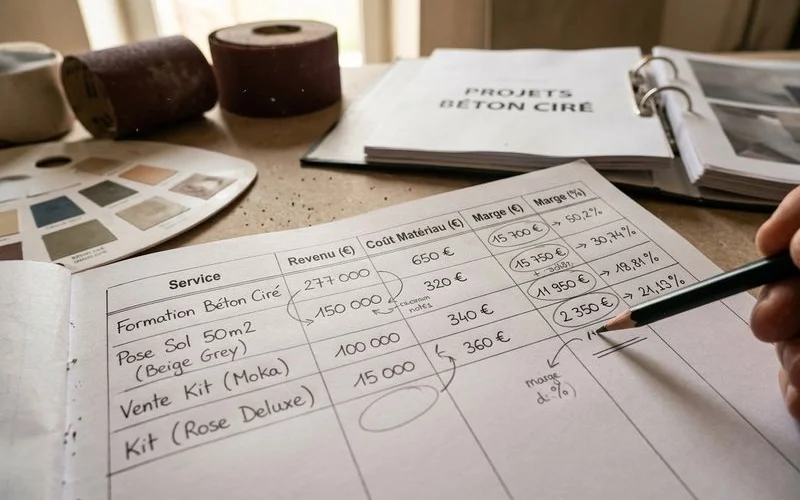 PROJETS
BÉTON CIRÉ
Service Revenu (€) Coût Matériau (€) Marge (€) Marge (%)
Formation Béton Ciré 277 000 650 € 15 700 € → 50,2%
Pose Sol 50m2 150 000 320 € 15 750 € → 30,74%
(Beige Grey)
Vente Kit (Moka) 100 000 340 € 11 950 € → 18,81%
Kit (Rose Deluxe) 15 000 360 € 2 350 € → 21,13%
marge